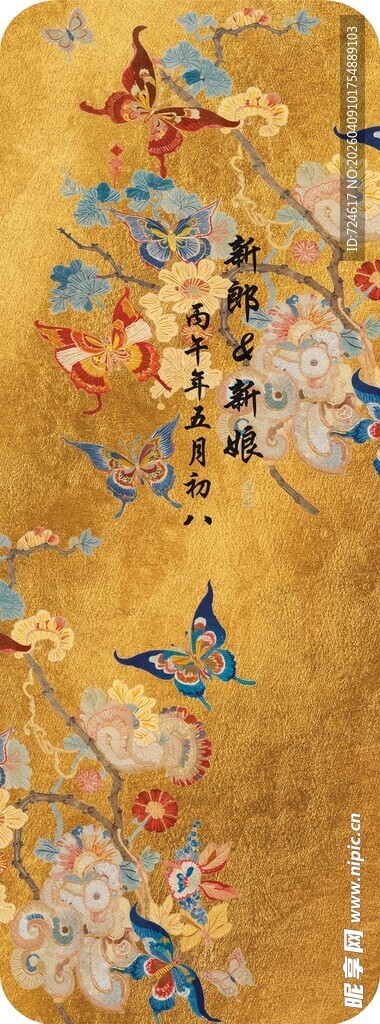 新郎&新娘
丙午年五月初八
ID:724617 NO:20260409101754889103
昵享网 www.nipic.cn